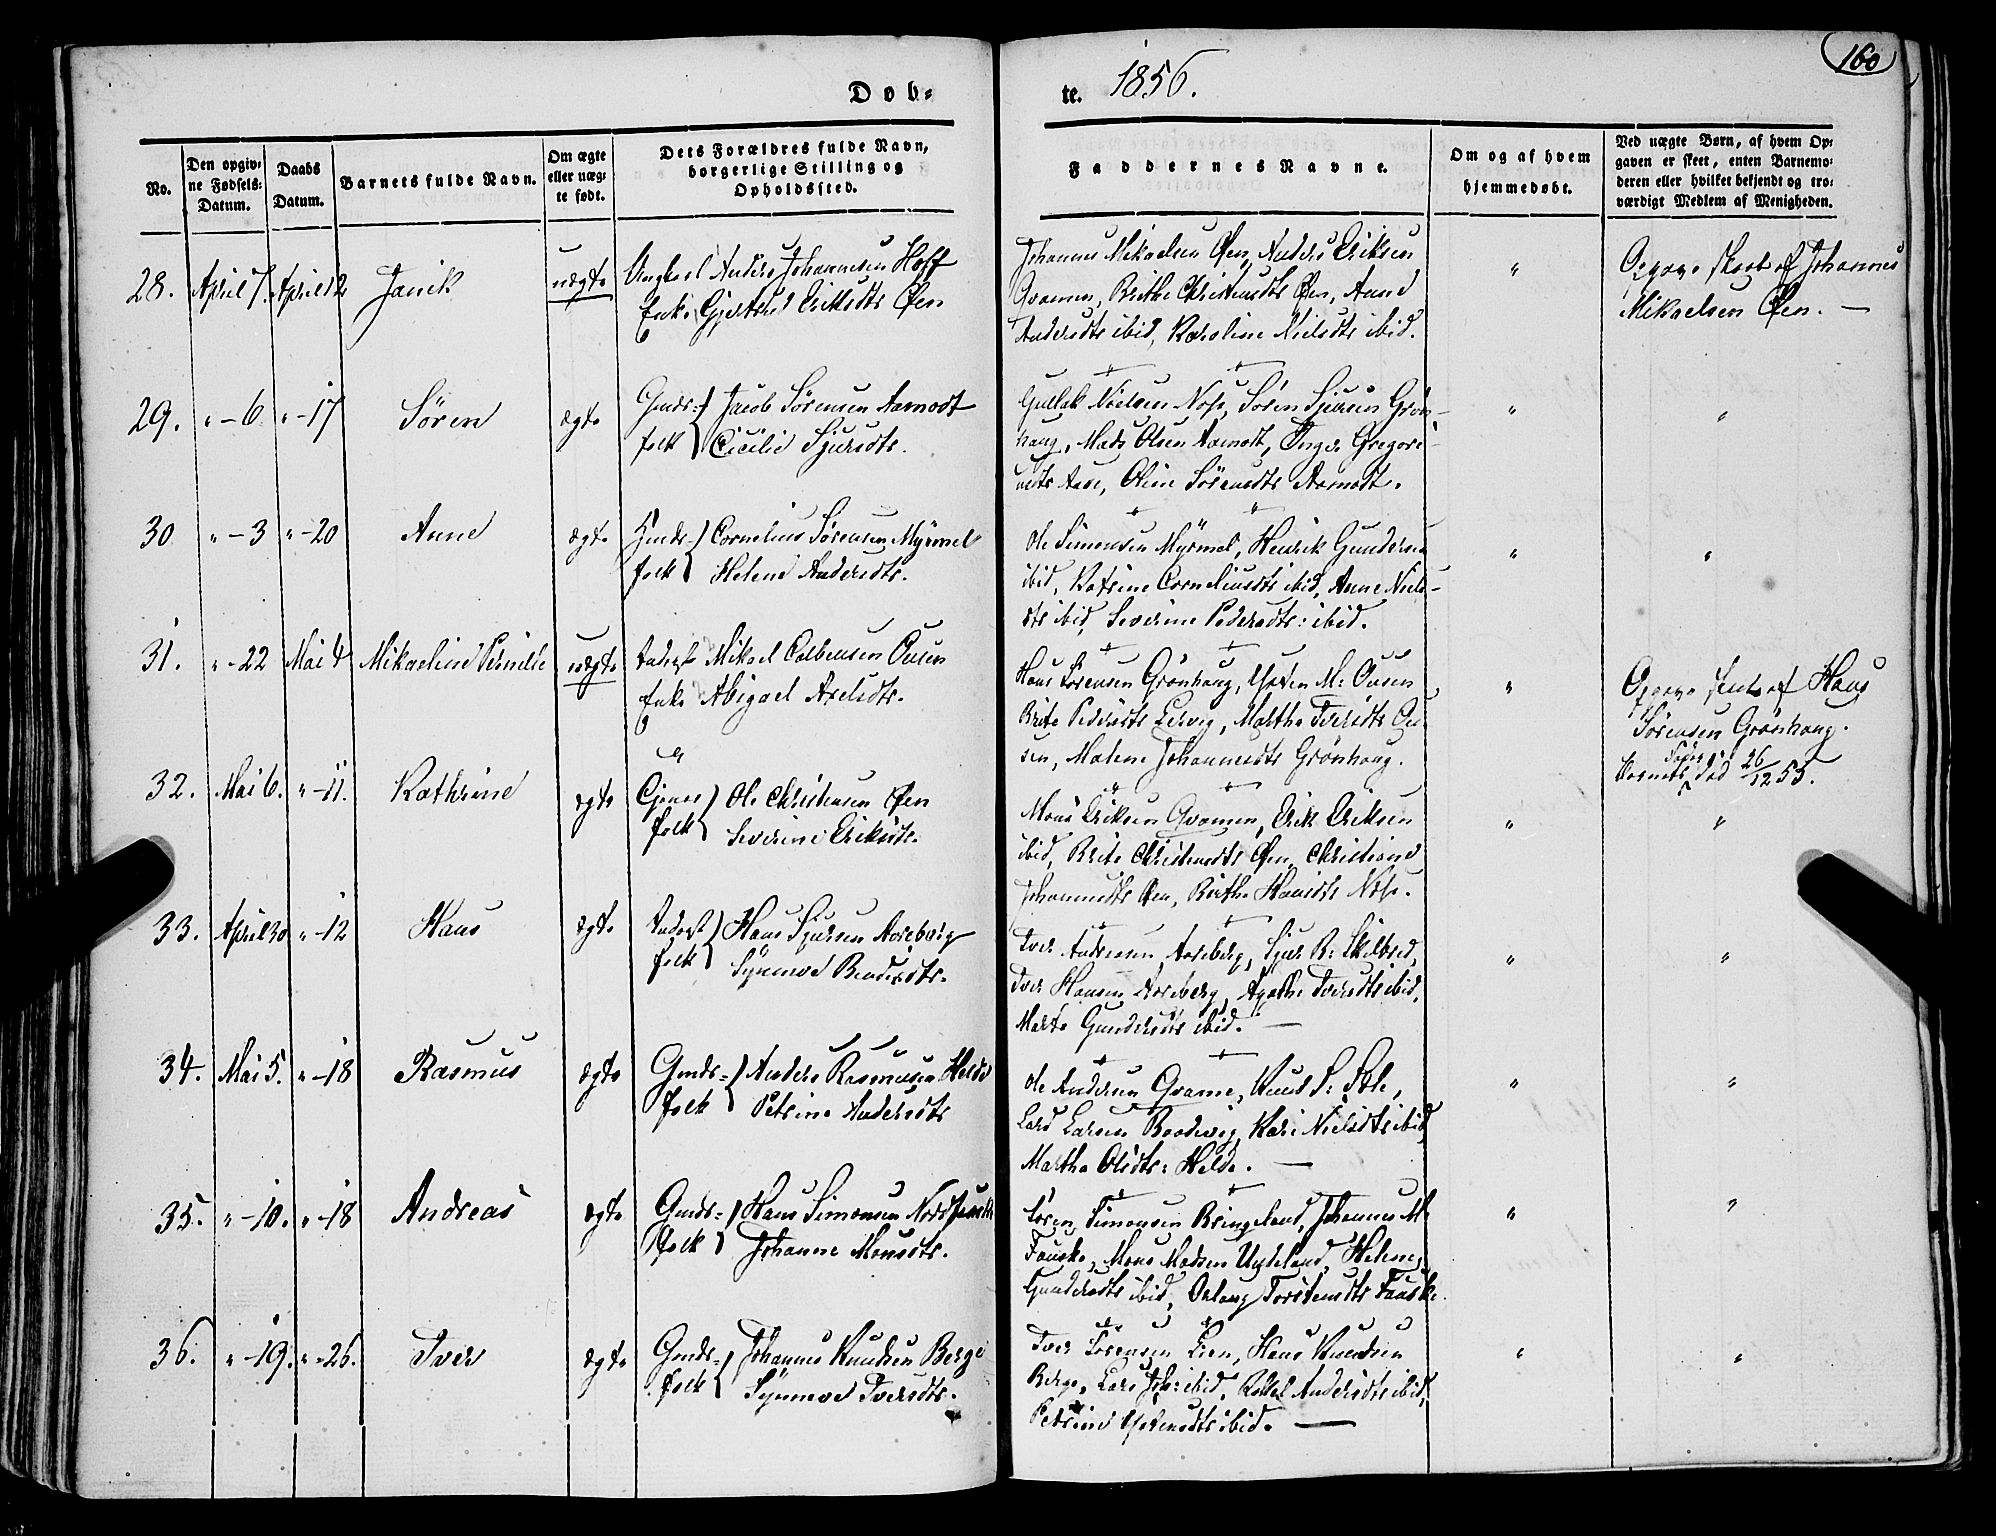 160
Døb-
te. 1856.
No.
Den opgivne Fødsels-Datum.
Daabs Datum.
Barnets fulde Navn.
Om ægte eller uægte født.
Dets Forældres fulde Navn, borgerlige Stilling og Opholdssted.
Faddernes Navne.
Om og af hvem hjemmedøbt.
Ved uægte Børn, af hvem Opgaven er skeet, enten Barnemoderen eller hvilket bekjendt og troværdigt Medlem af Menigheden.
28. April 7. April 12 Janik uægte
Ungkarl Anders Johannesen Hoff
Enke Gjertrud Eriksdtr Øen
Johannes Mikaelsen Øen, Anders Eriksen
Qvamen, Brithe Christensdtr Øen, Anne
Andersdtr ibid, Karoline Nielsdtr ibid.
"
Opgave skeet af Johannes
Mikaelsen Øen. —
29. " - 6 " - 17 Søren ægte
Gmds- Jacob Sørensen Aamodt
folk Cicilie Sjursdtr.
Gullak Nielsen Nose, Søren Sjursen Grøn-
haug, Mads Olsen Aamodt, Inge Gregori-
usdtr Aase, Oline Sørensdtr Aamodt.
" "
30 " - 3 " - 20 Anne ægte
Hmds- Cornelius Sørensen Myrmel
folk Helene Andersdtr.
Ole Simonsen Myrmel, Henrik Gundersen
ibid, Katrine Corneliusdtr ibid, Anne Niels-
dtr ibid, Severine Pedersdtr: ibid.
" "
31. " - 22 Mai 4 Mikaeline Pernille uægte
Inderst Mikael Colbensen Ousen
Enke Abigael Axelsdtr.
Hans Sørensen Grönhaug, M: Ousen
Brite Pedersdtr Lervig, Marthe Iversdtr Ou-
sen, Malene Johannesdtr Grønhaug.
"
Opgave skeet af Hans
Sørensen Grönhaug.
Barnets Fader død 26/12 55.
32. Mai 6. " - 11. Kathrine ægte
Gjemes Ole Christensen Øen
folk Severine Eriksdtr.
Mons Eriksen Qvamen, Erik Eriksen
ibid, Brite Christensdtr Øen, Christiane
Johannesdtr Øen, Birthe Hansdtr Nose.
" "
33. April 30 " - 12 Hans ægte
Inderst Hans Sjursen Aareberg
folk Synneve Bendiksdtr.
Iver Andersen Aareberg, Sjur R: Skilbred,
Iver Hansen Aareberg, Agathe Iversdtr ibid,
Marte Gundersdtr ibid. —
" "
34. Mai 5. " - 18 Rasmus ægte
Gmds- Anders Rasmusen Helde
folk Petrine Andersdtr
Ole Andersen Qvame, Knud S: Sole,
Lars Larsen Boadvig, Kari Nielsdtr ibid,
Martha Olsdtr: Helde. —
" "
35. " - 10. " - 18 Andreas ægte
Gmds- Hans Simonsen
folk Johanne Monsdtr.
Søren Simonsen Bringeland, Johannes M:
Fauske, Mons Madsen Uglelund, Helene
Gundersdtr ibid, Torstensdtr Fauske.
" "
36. " - 19. " - 26. Iver ægte
Gmds- Johannes Knudsen Berge
folk Synneve Iversdtr.
Iver Sørensen Lien, Hans Knudsen
Berge, Lars Joh: ibid, Rakel Andersdtr ibid,
Petrine ibid. —
" "